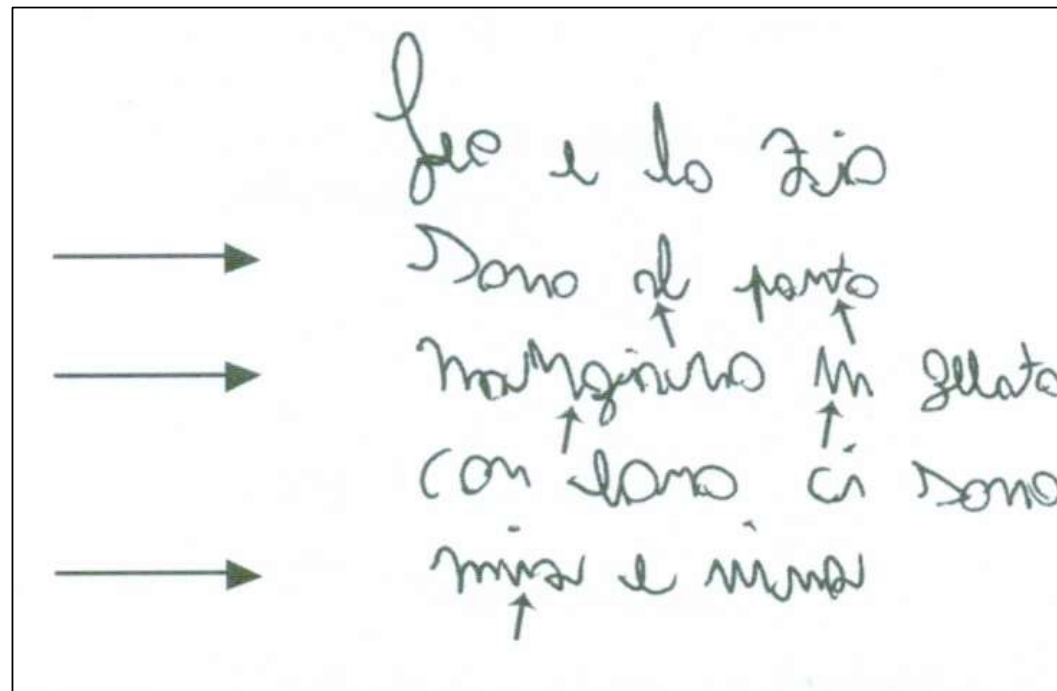 Leo e lo zio
sono al porto
mangiano un gelato
con loro ci sono
e nina